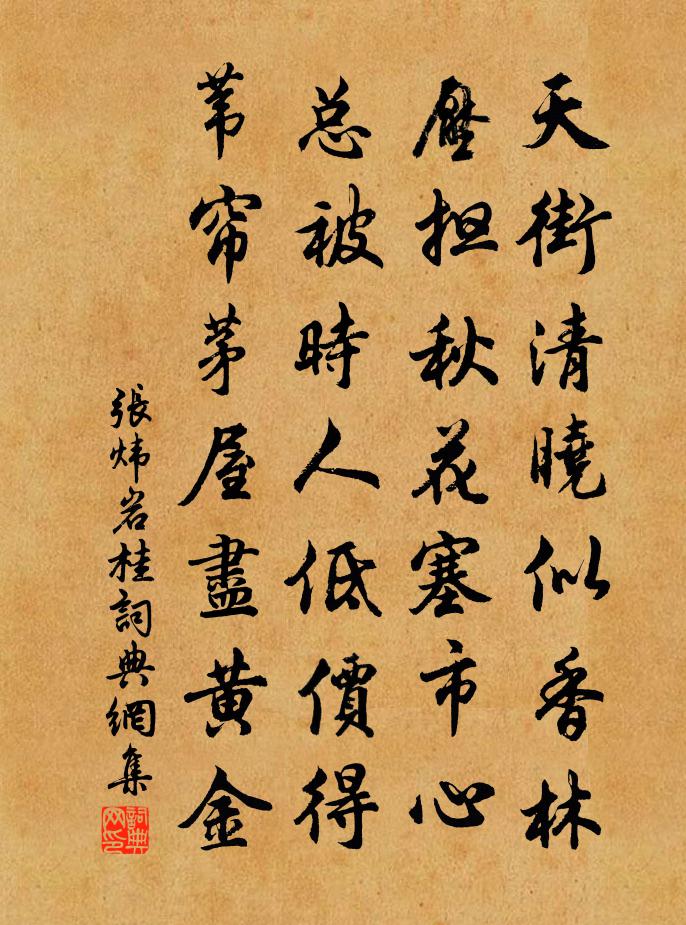 天街清曉似香林
壓担秋花塞市心
总被時人低價得
苇帘茅屋盡黄金
張炜岩桂詞典網集
詞典网印